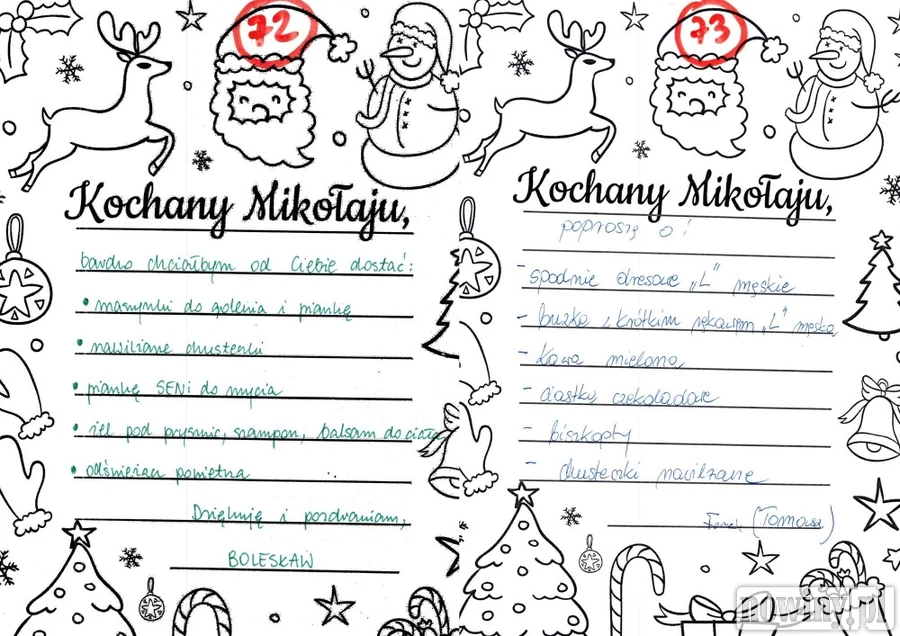 72
Kochany Mikołaju,
bardzo chciałbym od Ciebie dostać:
• maszynki do golenia i piankę
• nawilżane chusteczki
• piankę SENI do mycia
• żel pod prysznic, szampon, balsam do ciała
• odświeżacz powietrza
Dziękuję i pozdrawiam,
BOLESŁAW
73
Kochany Mikołaju,
poproszę o:
- spodnie dresowe „L" męskie
- bluzka z krótkim rękawem „L" męska
- kawa mielona
- ciastka czekoladowe
- biszkopty
- chusteczki nawilżane
(Tomasz)
nowiny.pl